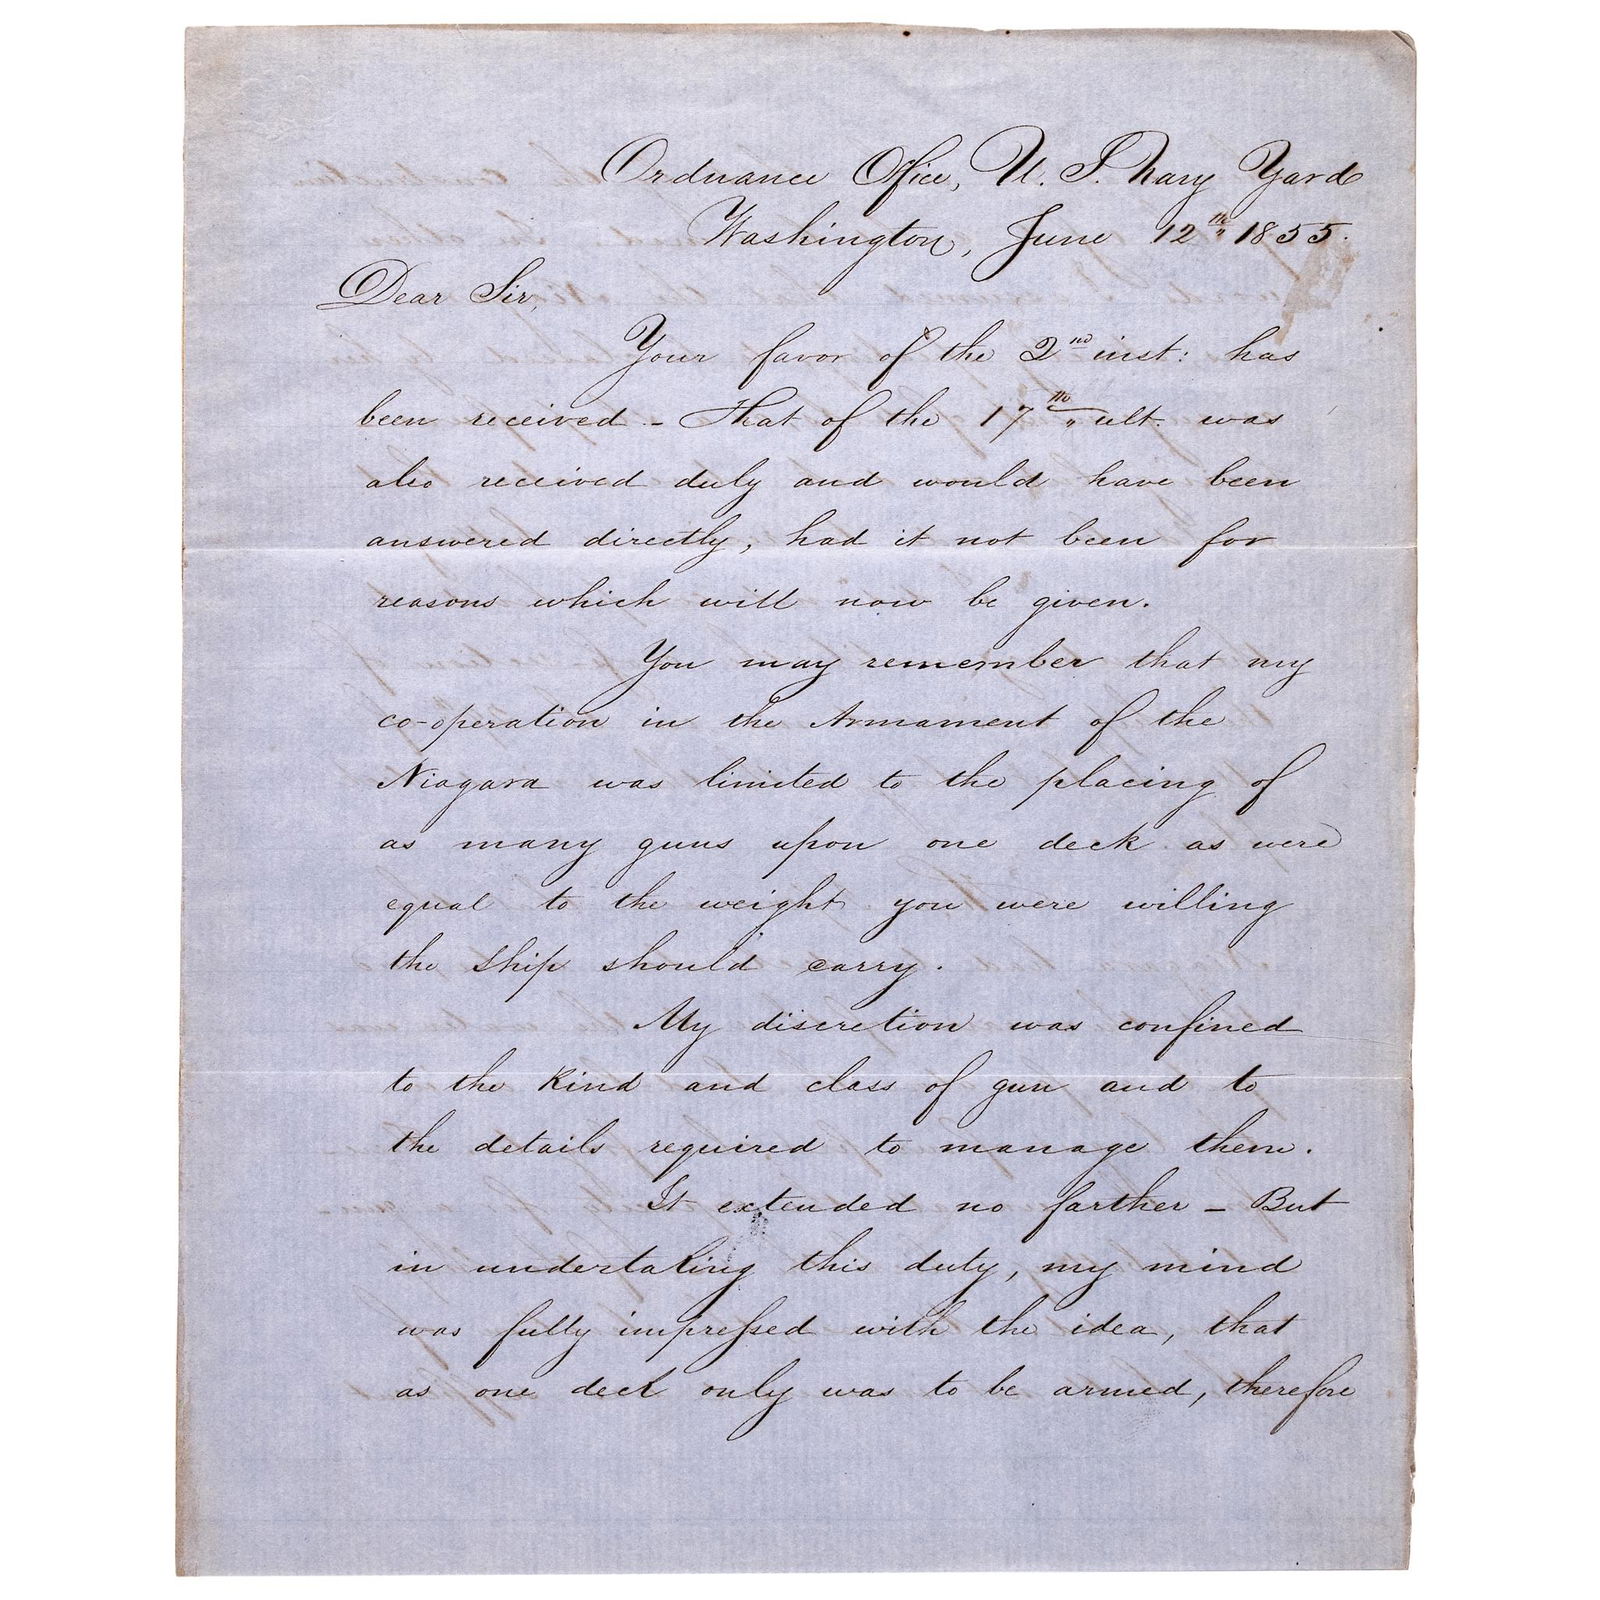 Ordnance Office, U. S. Navy Yard
Washington, June 12th 1855.
Dear Sir,
Your favor of the 2nd inst: has
been received - That of the 17th ult. was
also received duly and would have been
answered directly, had it not been for
reasons which will now be given.
You may remember that my
co-operation in the Armament of the
Niagara was limited to the placing of
as many guns upon one deck as were
equal to the weight you were willing
the Ship should carry.
My discretion was confined
to the Kind and class of gun and to
the details required to manage them.
It extended no farther - But
in undertaking this duty, my mind
was fully impressed with the idea, that
as one deck only was to be armed, therefore